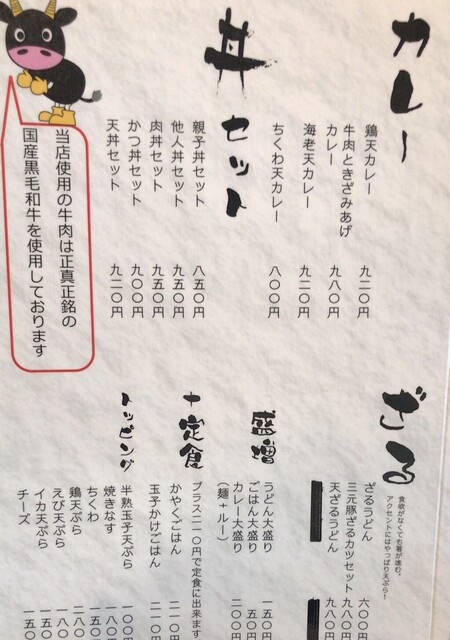 カレー
鶏天カレー 九二〇円
牛肉ときざみあげ
カレー 九八〇円
海老天カレー 九二〇円
ちくわ天カレー 八〇〇円
丼セット
親子丼セット 八五〇円
他人丼セット 九五〇円
肉丼セット 九五〇円
かつ丼セット 九〇〇円
天丼セット 九二〇円
当店使用の牛肉は正真正銘の
国産黒毛和牛を使用しております
ざる
食欲がなくても箸が進む、
アクセントにはやっぱり天ぷら!
ざるうどん 六〇〇円
三元豚ざるカツセット 九八〇円
天ざるうどん 九八〇円
盛増
うどん大盛り 一五〇円
ごはん大盛り 五〇円
カレー大盛り 二〇〇円
(麺+ルー)
+定食
プラス二一〇円で定食に出来ます
かやくごはん 二一〇円
玉子かけごはん 二一〇円
トッピング
半熟玉子天ぷら 一〇〇
焼きなす 一五〇
ちくわ
鶏天ぷら 二八〇
えび天ぷら 一八〇
イカ天ぷら 一五〇
チーズ 一五